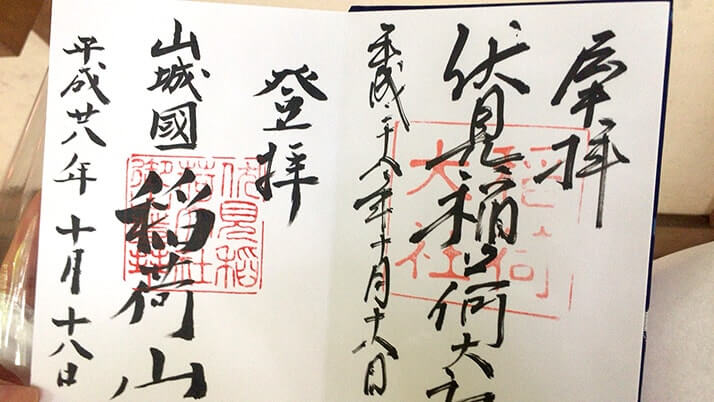 奉拝
伏見稲荷大社
稲荷
大社
平成二十八年十月十八日
登拝
山城國
稲荷山
伏見稲
平成廿八年十月十八日